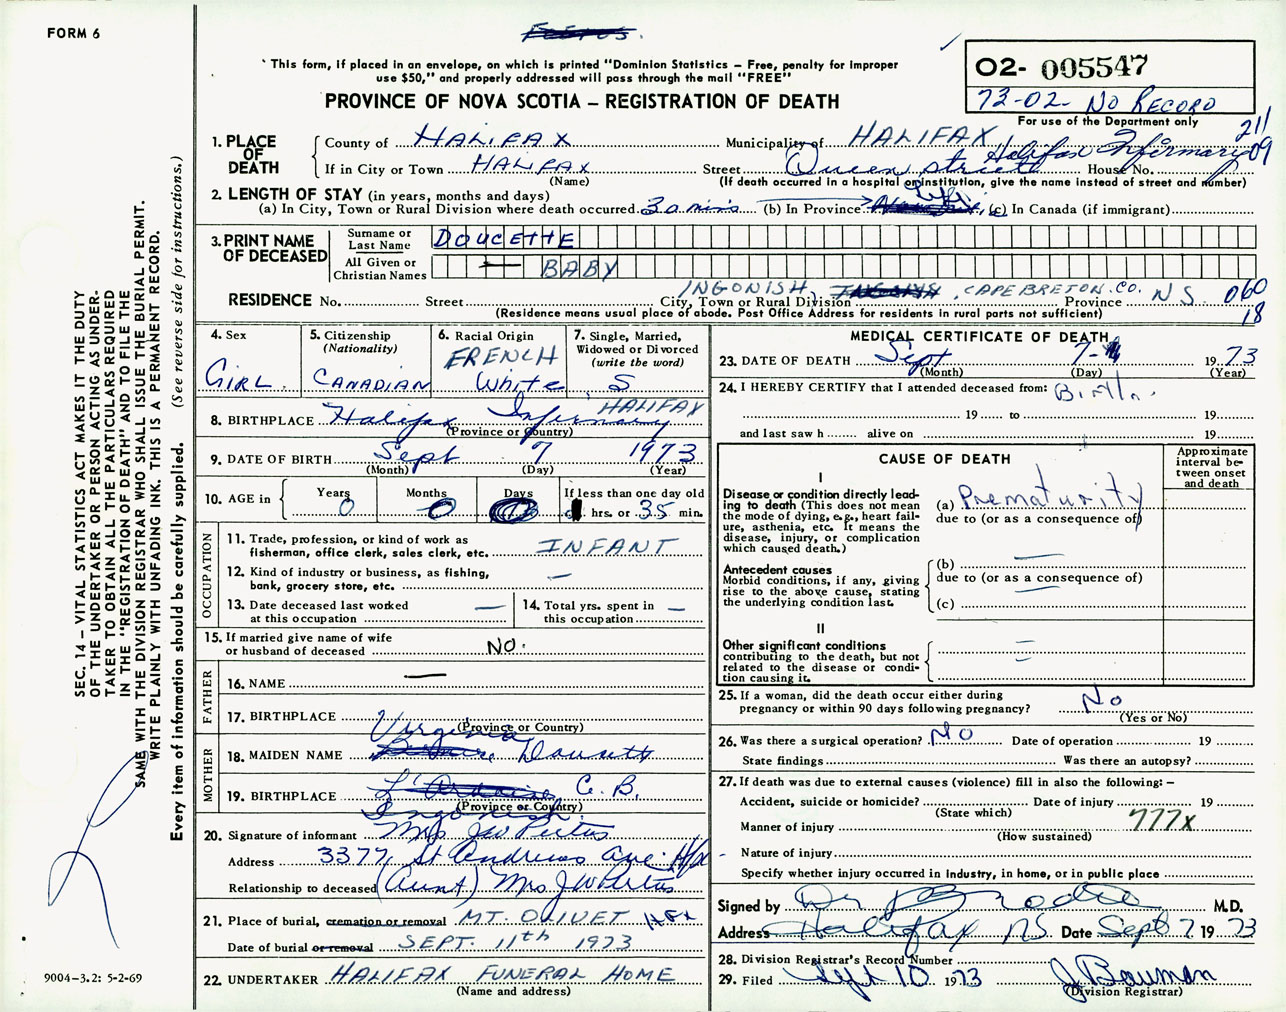 FORM 6
' This form, if placed in an envelope, on which is printed "Dominion Statistics – Free, penalty for improper
use $50," and properly addressed will pass through the mail "FREE"
PROVINCE OF NOVA SCOTIA – REGISTRATION OF DEATH
O2- 005547
73-02- No Record
For use of the Department only
211
09
1. PLACE OF DEATH
County of HALIFAX Municipality of HALIFAX
Halifax Infirmary
If in City or Town HALIFAX Street Queen Street House No.
(Name) (If death occurred in a hospital or institution, give the name instead of street and number)
2. LENGTH OF STAY (in years, months and days)
(a) In City, Town or Rural Division where death occurred 30 mins (b) In Province Life (c) In Canada (if immigrant)
3. PRINT NAME OF DECEASED
Surname or Last Name DOUCETTE
All Given or Christian Names — BABY
RESIDENCE No. Street City, Town or Rural Division INGONISH, CAPE BRETON. CO. Province N S. 060
18
(Residence means usual place of abode. Post Office Address for residents in rural parts not sufficient)
4. Sex GIRL
5. Citizenship (Nationality) CANADIAN
6. Racial Origin FRENCH White
7. Single, Married, Widowed or Divorced (write the word) S
8. BIRTHPLACE Halifax Infirmary HALIFAX
(Province or Country)
9. DATE OF BIRTH Sept 7 1973
(Month) (Day) (Year)
10. AGE in Years 0 Months 0 Days If less than one day old hrs. or 35 min.
OCCUPATION
11. Trade, profession, or kind of work as fisherman, office clerk, sales clerk, etc. INFANT
12. Kind of industry or business, as fishing, bank, grocery store, etc. —
13. Date deceased last worked at this occupation —
14. Total yrs. spent in this occupation —
15. If married give name of wife or husband of deceased NO.
FATHER
16. NAME —
17. BIRTHPLACE
(Province or Country)
MOTHER
Virginia
18. MAIDEN NAME Doucette
19. BIRTHPLACE L'Ardoise C. B.
(Province or Country)
Ingonish
20. Signature of informant Mrs J W Pertus
Address 3377, St Andrews Ave. Hfx
Relationship to deceased (Aunt) Mrs J W Pertus
21. Place of burial, cremation or removal MT. OLIVET HFX
Date of burial or removal SEPT. 11th 1973
22. UNDERTAKER HALIFAX FUNERAL HOME
(Name and address)
MEDICAL CERTIFICATE OF DEATH
23. DATE OF DEATH Sept 7- 1973
(Month) (Day) (Year)
24. I HEREBY CERTIFY that I attended deceased from: Birth.
19 to 19
and last saw h alive on 19
CAUSE OF DEATH
Approximate interval between onset and death
I
Disease or condition directly leading to death (This does not mean the mode of dying, e.g., heart failure, asthenia, etc. It means the disease, injury, or complication which caused death.)
(a) Prematurity
due to (or as a consequence of)
Antecedent causes
Morbid conditions, if any, giving rise to the above cause, stating the underlying condition last.
(b) —
due to (or as a consequence of)
(c)
II
Other significant conditions
contributing to the death, but not related to the disease or condition causing it.
25. If a woman, did the death occur either during pregnancy or within 90 days following pregnancy? No
(Yes or No)
26. Was there a surgical operation? No Date of operation 19
State findings Was there an autopsy?
27. If death was due to external causes (violence) fill in also the following: –
Accident, suicide or homicide? Date of injury 19
(State which)
Manner of injury 777x
(How sustained)
Nature of injury
Specify whether injury occurred in industry, in home, or in public place
Signed by Dr Brodie M.D.
Address Halifax NS. Date Sept 7 1973
28. Division Registrar's Record Number
29. Filed Sept 10 1973 J Bauman
(Division Registrar)
SEC. 14 – VITAL STATISTICS ACT MAKES IT THE DUTY
OF THE UNDERTAKER OR PERSON ACTING AS UNDER-
TAKER TO OBTAIN ALL THE PARTICULARS REQUIRED
IN THE "REGISTRATION OF DEATH" AND TO FILE THE
SAME WITH THE DIVISION REGISTRAR WHO SHALL ISSUE THE BURIAL PERMIT.
WRITE PLAINLY WITH UNFADING INK. THIS IS A PERMANENT RECORD.
Every item of information should be carefully supplied. (See reverse side for instructions.)
9004–3.2: 5-2-69